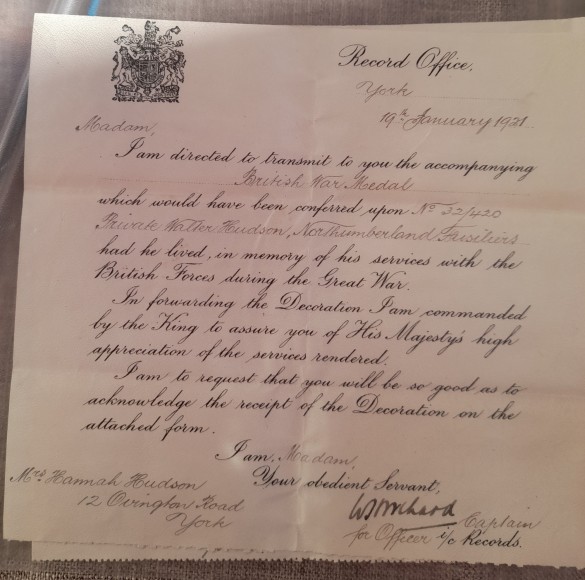 Record Office,
York
19th January 1921
Madam,
I am directed to transmit to you the accompanying
British War Medal
which would have been conferred upon No 32/420
Private Walter Hudson, Northumberland Fusiliers
had he lived, in memory of his services with the
British Forces during the Great War.
In forwarding the Decoration I am commanded
by the King to assure you of His Majesty's high
appreciation of the services rendered.
I am to request that you will be so good as to
acknowledge the receipt of the Decoration on the
attached form.
I am, Madam,
Your obedient Servant,
Captain
for Officer i/c Records.
Mrs Hannah Hudson
12 Ovington Road
York